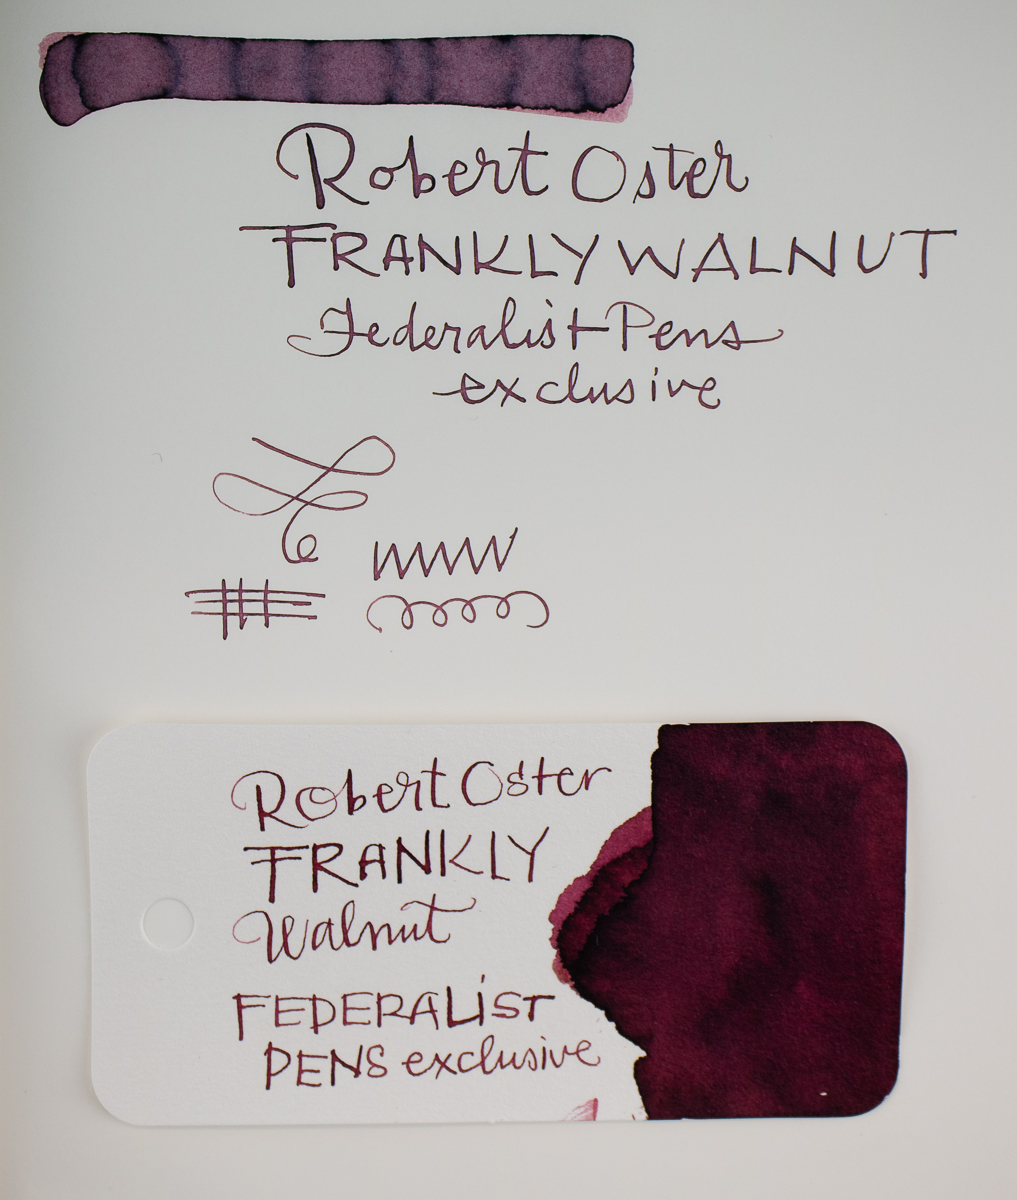 Robert Oster
FRANKLY WALNUT
Federalist Pens
exclusive
Robert Oster
FRANKLY
Walnut
FEDERALiST
PENS exclusive